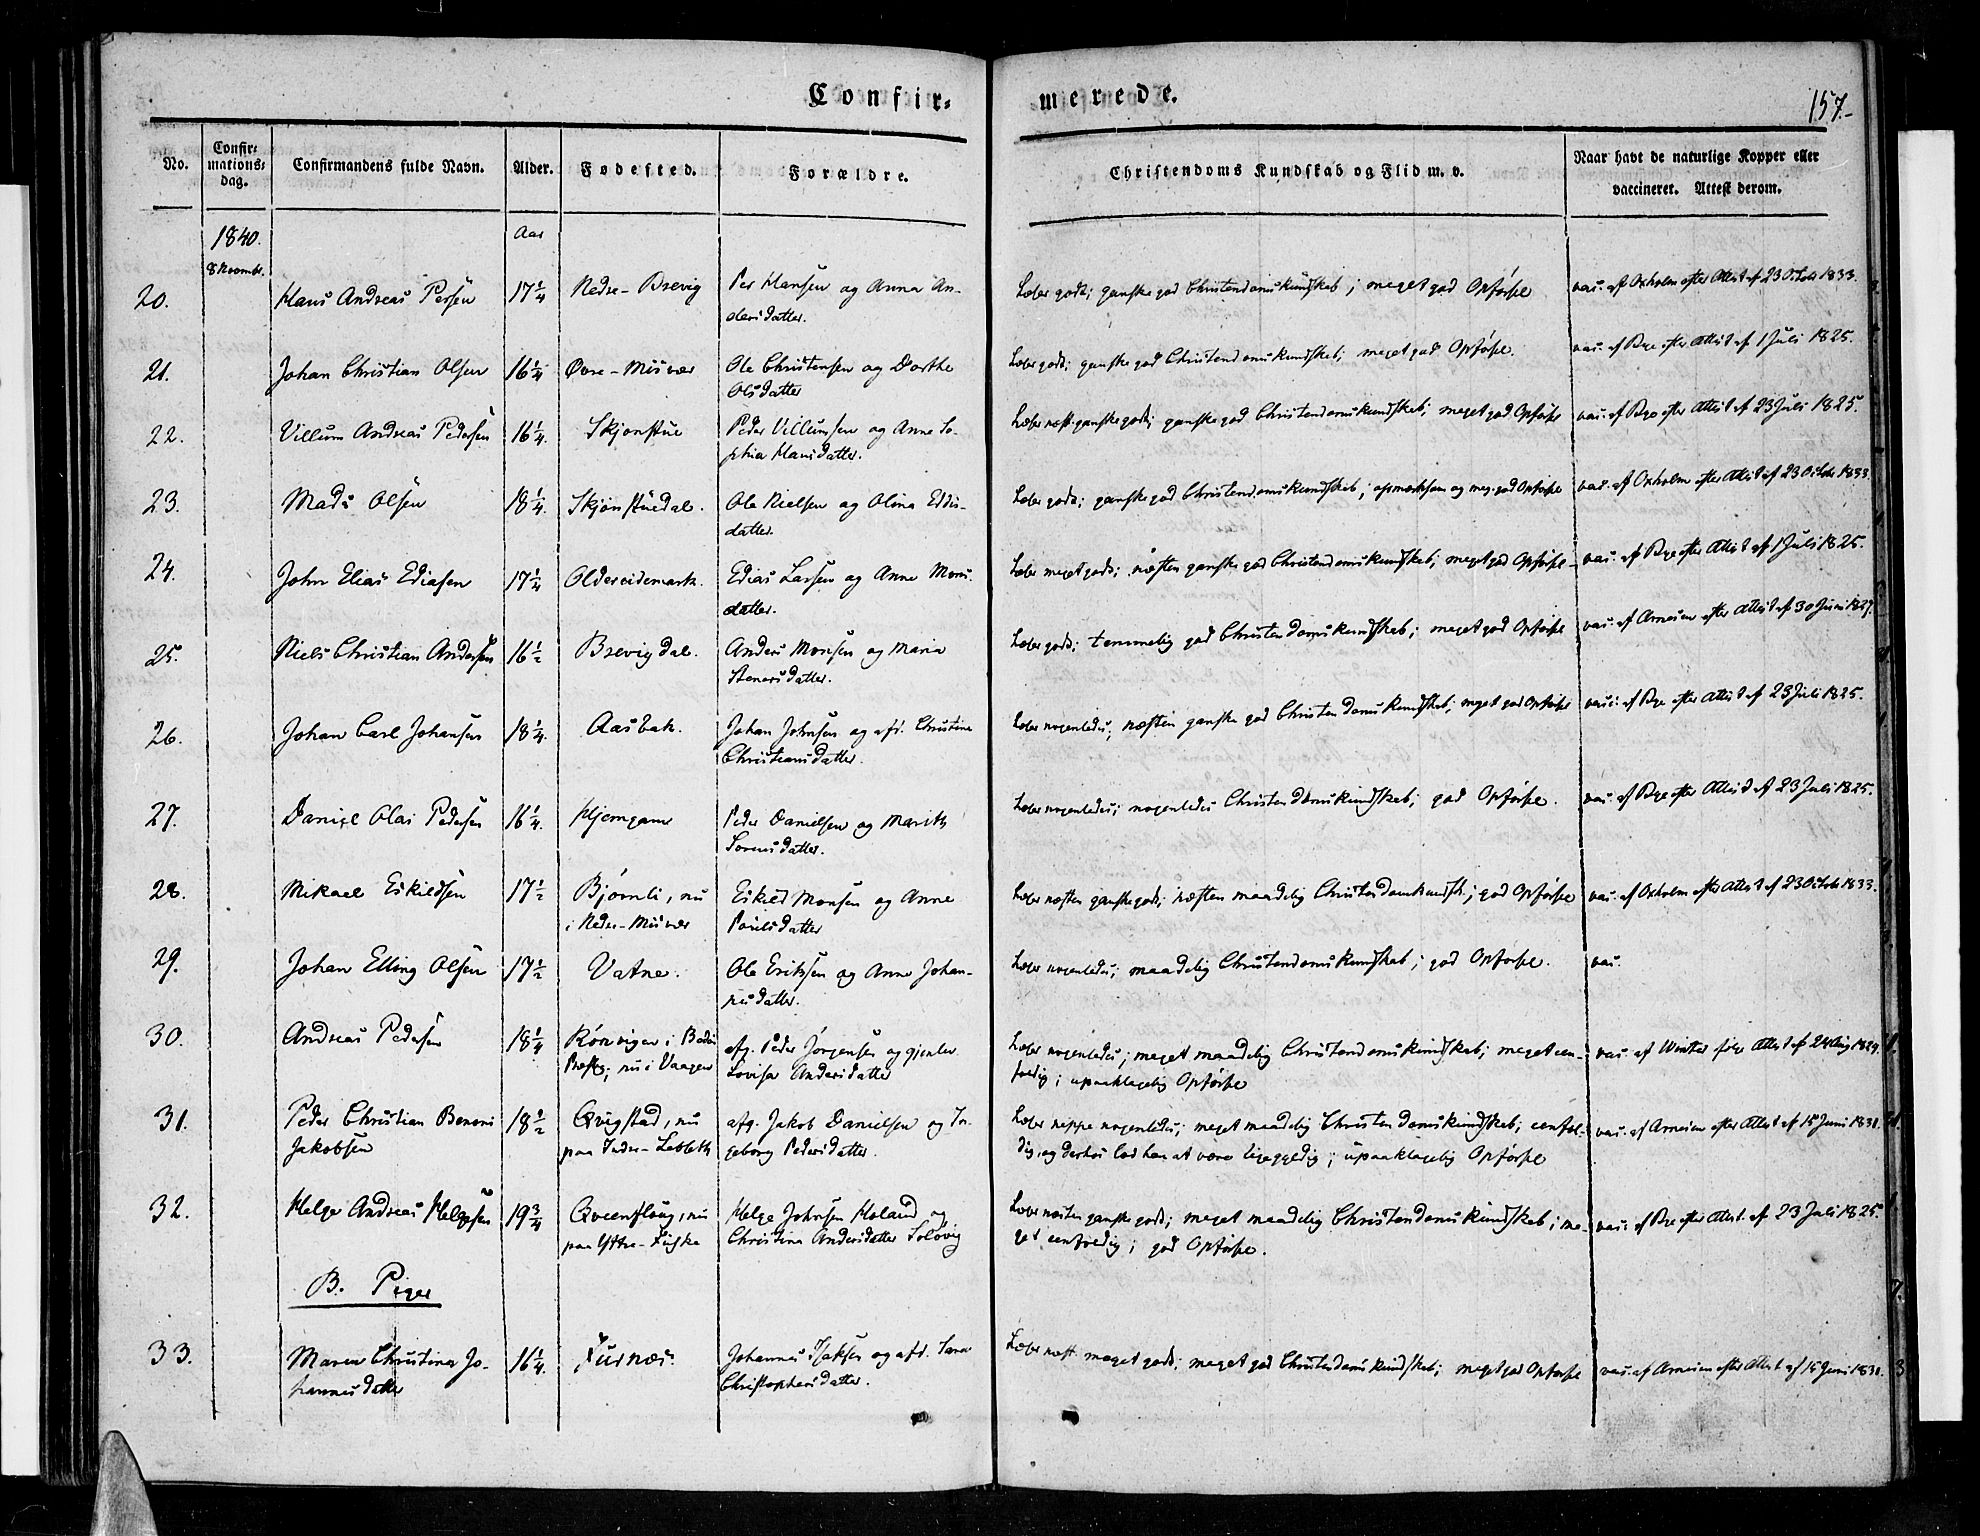 Confir-
merede.
157.-
No.
Confir-
mations-
dag.
Confirmandens fulde Navn.
Alder.
Fødested.
Forældre.
Christendoms Kundskab og Flid m. v.
Naar havt de naturlige Kopper eller
vaccineret. Attest derom.
1840.
Aar
8 Novembr.
20. Hans Andreas Persen 17 1/4 Nedre-Brevig Per Hansen og Anna An-
dersdatter.
Læser godt; ganske god Christendomskundskab; meget god Opførsel
vac. af Oxholm efter Attest af 23 Octobr 1833.
21. Johan Christian Olsen 16 1/4 Øvre-Misvær Ole Christensen og Dorthe
Olsdatter
Læser godt; ganske god Christendomskundskab; meget god Opførsel.
vac. af Bye efter Attest af 1 Juli 1825.
22. Villum Andreas Pedersen 16 1/4. Skjønstue Peder Villumsen og Anne So-
phia Hansdatter.
Læser næst. ganske godt; ganske god Christendomskundskab; meget god Opførsel
vac. af Bye efter Attest af 23 Juli 1825.
23. Mads Olsen 18 1/4. Skjønstuedal. Ole Nielsen og Olina Eddis-
datter.
Læser godt; ganske god Christendomskundskab; opmærksom og meg. god Opførsel
vac. af Oxholm efter Attest af 23 Octobr 1833.
24. John Elias Ediasen 17 1/4 Oldereidemark. Edias Larsen og Anne Mons-
datter.
Læser meget godt; næsten ganske god Christendomskundskab; meget god Opførsel-
vac. af Bye efter Attest af 1 Juli 1825.
25. Niels Christian Andersen 16 1/2 Brevigdal. Anders Monsen og Maria
Stenersdatter.
Læser godt; temmelig god Christendomskundskab; meget god Opførsel
vac. af Arnesen efter Attest af 30 Juni 1827.
26. Johan Carl Johansen 18 1/4. Aasbak. Johan Johnsen og afd. Christina
Christiansdatter.
Læser nogenledes; næsten ganske god Christendomskundskab; meget god Opførsel
vac. af Bye efter Attest af 23 Juli 1825.
27. Daniel Olai Pedersen 16 1/4. Hjemgam Peder Danielsen og Marith
Sorensdatter.
Læser nogenledes; nogenledes Christendomskundskab; god Opførsel.
vac. af Bye efter Attest af 23 Juli 1825.
28. Mikael Eskildsen 17 1/2 Bjørnli, nu
i Nedre-Misvær
Eskild Monsen og Anne
Povelsdatter
Læser næsten ganske godt; næsten maadelig Christendomskundsk.; god Opførsel
vac. af Oxholm efter Attest af 23 Octobr 1833.
29. Johan Elling Olsen 17 1/2 Vatne. Ole Eriksen og Anne Johan-
nesdatter.
Læser nogenledes; maadelig Christendomskundskab; god Opførsel.
vac.
30. Andreas Pedersen 18 1/4 Rønvigen i Bodø
Præstg; nu i Vaagen
afg. Peder Jørgensen og gjenlev.
Lovisa Andersdatter
Læser nogenledes; meget maadelig Christendomskundskab; meget een-
foldig; upaaklagelig Opførsel
vac. af Winter ifølge Attest af 24 Aug 1829.
31. Peder Christian Benoni
Jakobsen
18 1/2 Qvigstad, nu
paa Indre-Løbleth
afg. Jakob Danielsen og In-
geborg Pedersdatter.
Læser neppe nogenledes; meget maadelig Christendomskundskab; eenfol-
dig, og derhos lod han at være ligegyldig; upaaklagelig Opførsel
vac. af Arnesen efter Attest af 15 Juni 1831.
32. Helge Andreas Helgesen 19 3/4 Qveenflaug, nu
paa Yttre-Fuske
Helge Johnsen Moland og
Christina Andersdatter Soløvig
Læser næsten ganske godt; meget maadelig Christendomskundskab; me-
get eenfoldig; god Opførsel.
vac. af Bye efter Attest. af 23 Juli 1825.
B. Piger
33. Maren Christina Jo-
hannesdatter
16 1/4. Furnæs. Johannes Isaksen og afd. Sara
Christophersdatter.
Læser næst. meget godt; meget god Christendomskundskab; meget god Opførsel
vac. af Arnesen efter Attest af 15 Juni 1831.